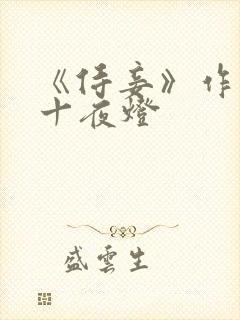 《侍妾》作
十夜燈
盛雲生